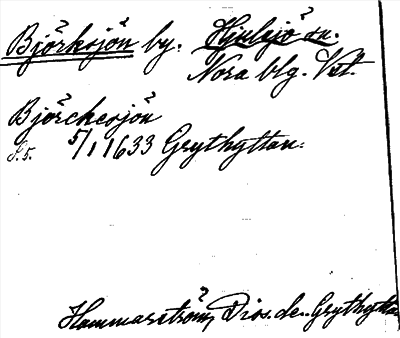 Björksjön by. Hjulsjö sn.
Nora blg. Vstl.
Björckesjön
S. 5. 5/1 1633 Grythyttan.
Hammarström, Dios. de. Grythyttan